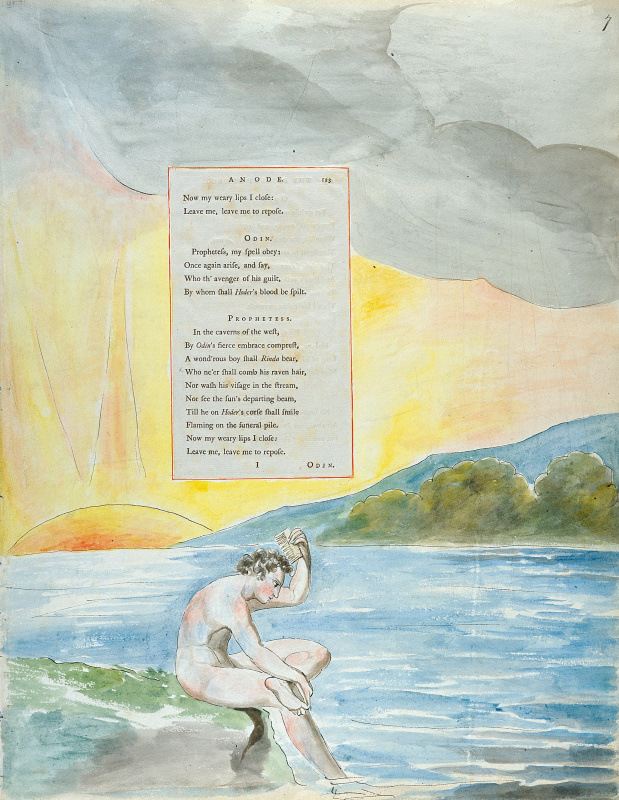 7
AN ODE. 123
Now my weary lips I cloſe:
Leave me, leave me to repoſe.
ODIN.
Propheteſs, my ſpell obey;
Once again ariſe, and ſay,
Who th' avenger of his guilt,
By whom ſhall Hoder's blood be ſpilt.
PROPHETESS.
In the caverns of the weſt,
By Odin's fierce embrace compreſt,
A wond'rous boy ſhall Rinda bear,
Who ne'er ſhall comb his raven hair,
Nor waſh his viſage in the ſtream,
Nor ſee the ſun's departing beam,
Till he on Hoder's corſe ſhall ſmile
Flaming on the funeral pile.
Now my weary lips I cloſe:
Leave me, leave me to repoſe.
I ODIN.